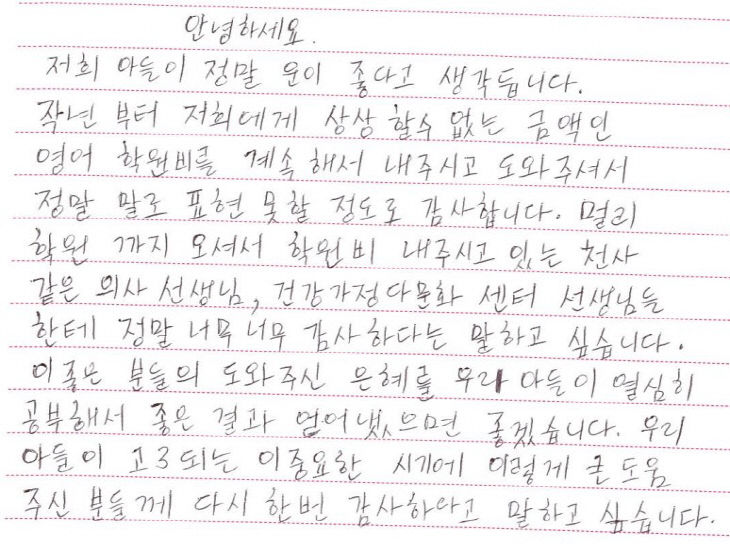 안녕하세요.
저희 아들이 정말 운이 좋다고 생각듭니다.
작년 부터 저희에게 상상 할수 없는 금액인
영어 학원비를 계속 해서 내주시고 도와주셔서
정말 말로 표현 못할 정도로 감사합니다. 멀리
학원 까지 오셔서 학원비 내주시고 있는 천사
같은 의사 선생님, 건강가정다문화 센터 선생님들
한테 정말 너무 너무 감사하다는 말하고 싶습니다.
이좋은 분들의 도와주신 은혜를 우리 아들이 열심히
공부해서 좋은 결과 얻어냈으면 좋겠습니다. 우리
아들이 고3되는 이중요한 시기에 이렇게 큰 도움
주신 분들께 다시 한번 감사하다고 말하고 싶습니다.